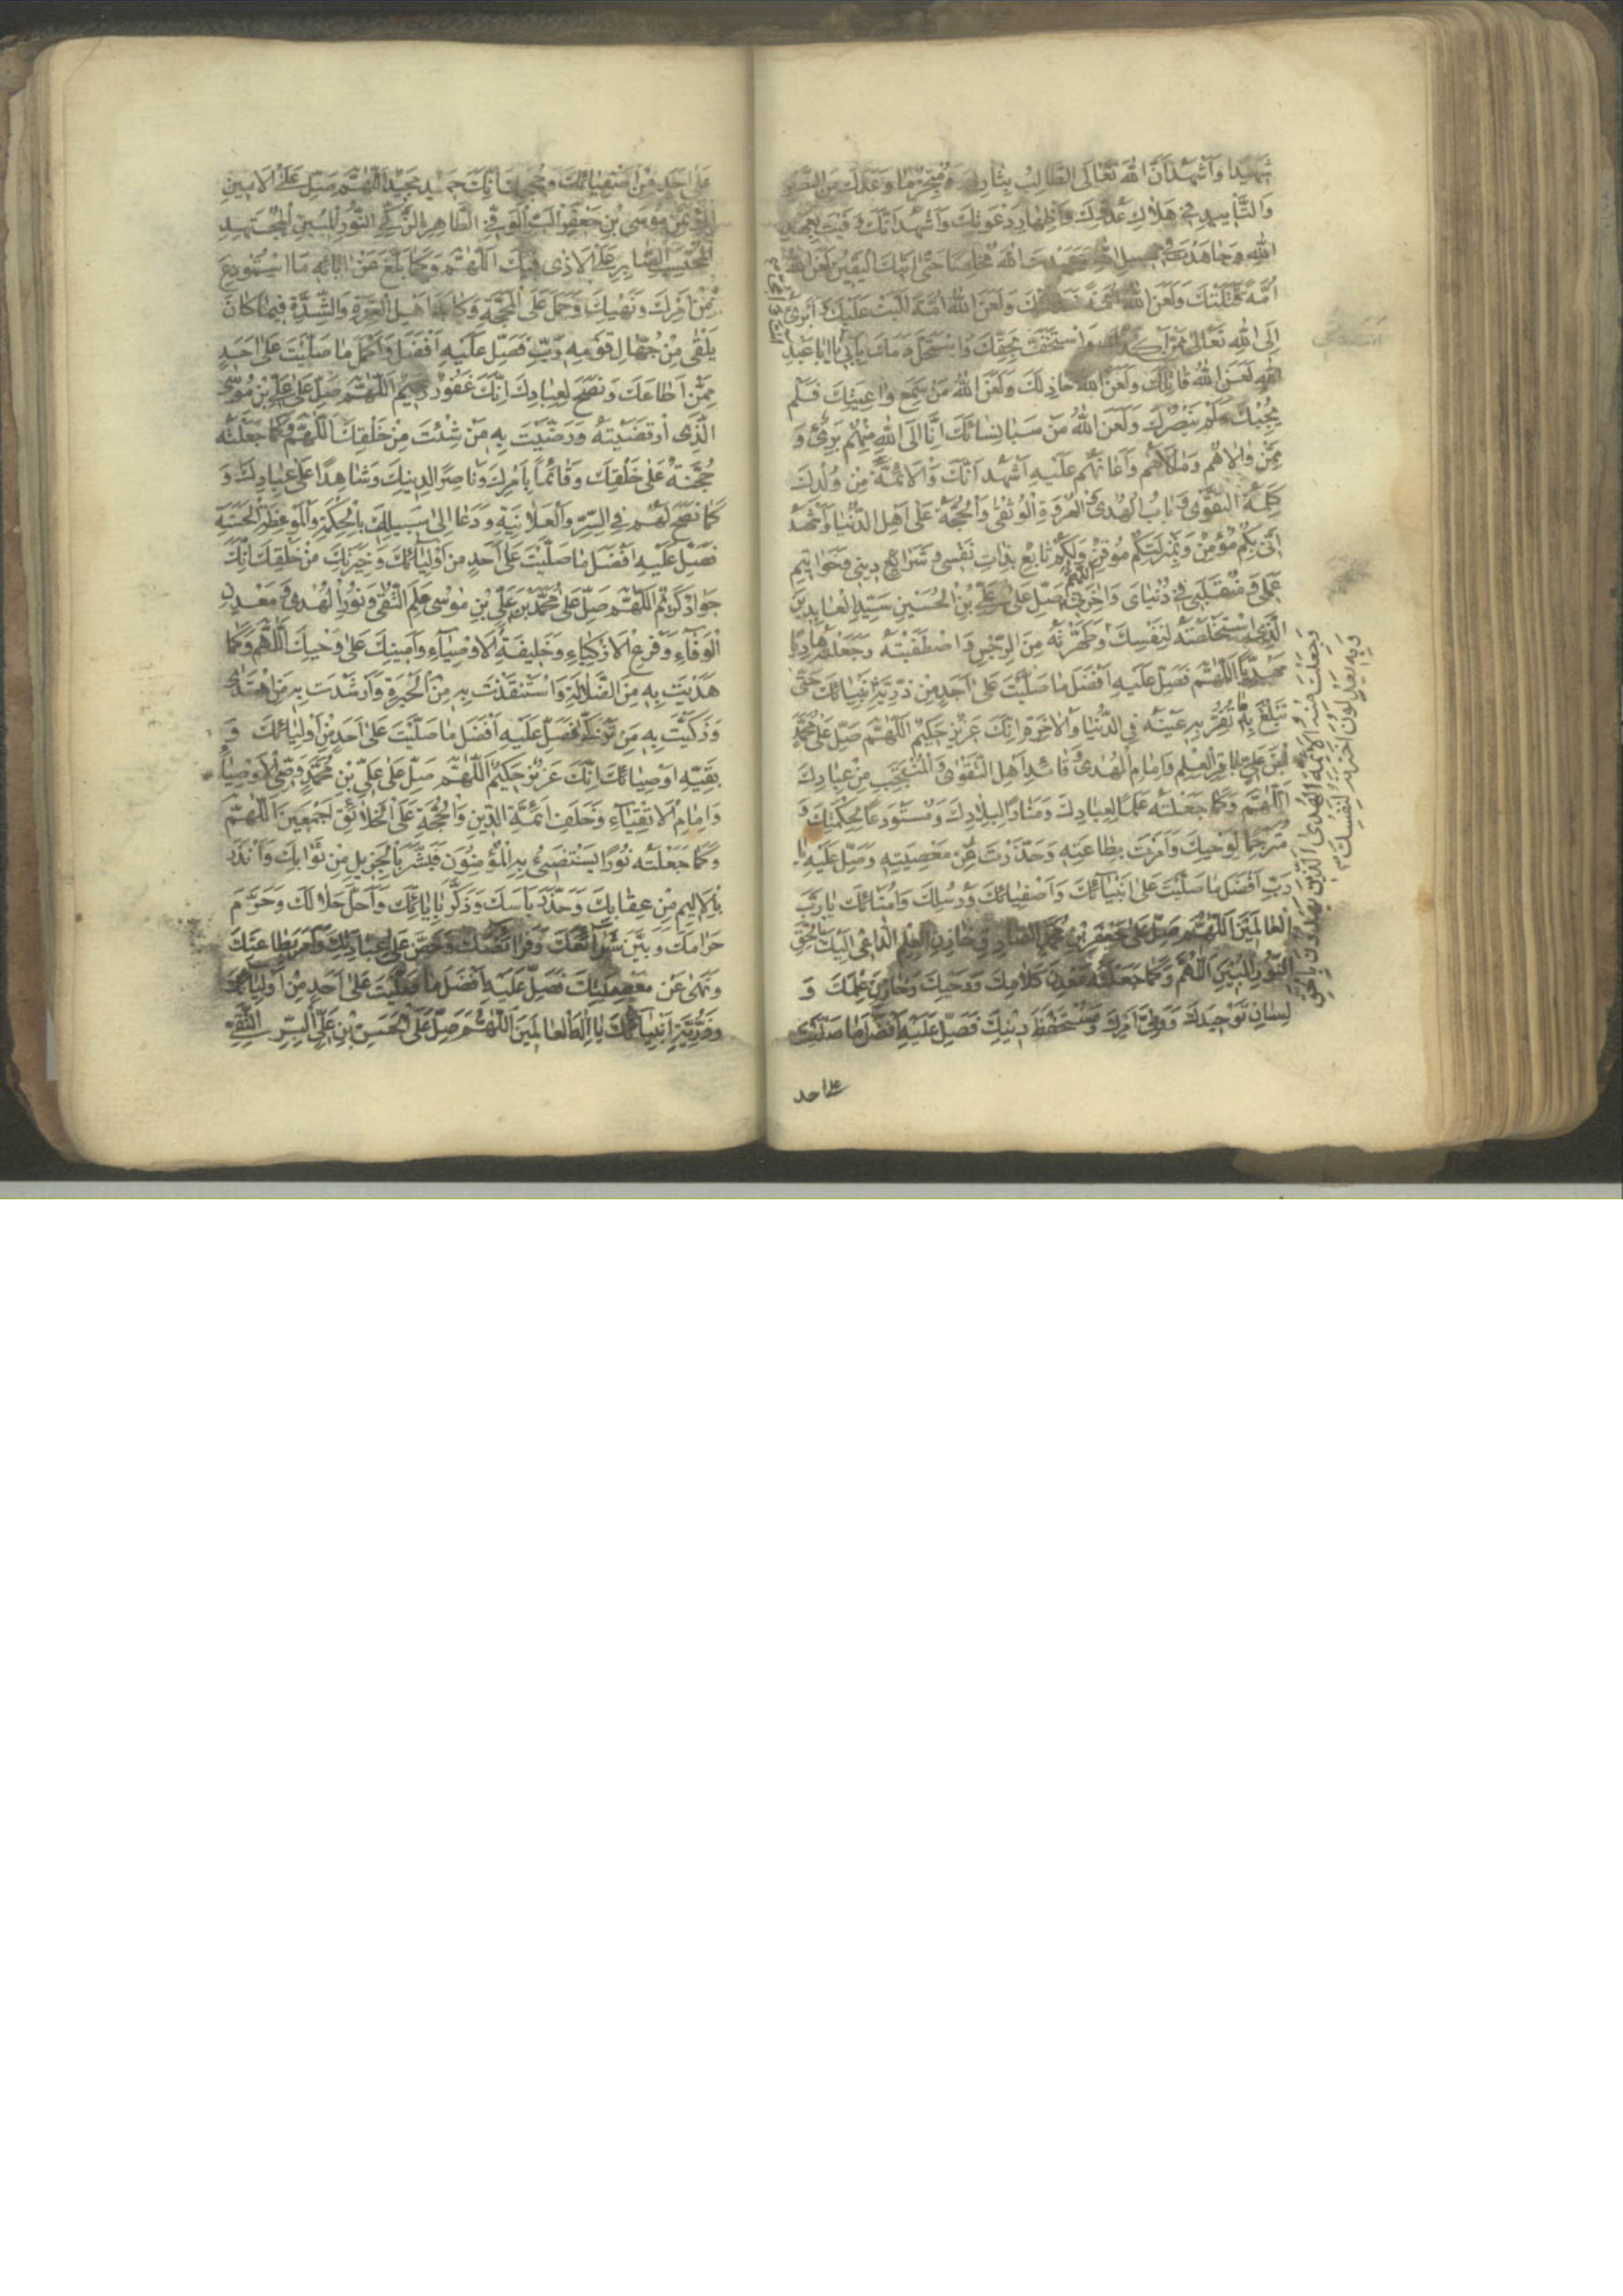 شَهِيدًا وَاَشْهَدُ اَنَّ اللّٰهَ تَعَالَى الطَّالِبُ بِثَارِكَ وَمُنْجِزٌ مَا وَعَدَكَ مِنَ النَّصْرِ
وَالتَّأْيِيدِ فِي هَلَاكِ عَدُوِّكَ وَاِظْهَارِ دَعْوَتِكَ وَاَشْهَدُ اَنَّكَ وَفَيْتَ بِعَهْدِ
اللّٰهِ وَجَاهَدْتَ فِي سَبِيلِ اللّٰهِ وَعَبَدْتَ اللّٰهَ مُخْلِصًا حَتّٰى اَتٰيكَ الْيَقِينُ لَعَنَ اللّٰهُ
اُمَّةً قَتَلَتْكَ وَلَعَنَ اللّٰهُ اُمَّةً خَذَلَتْكَ وَلَعَنَ اللّٰهُ اُمَّةً اَلَّبَتْ عَلَيْكَ وَاَبْرَئُ
اِلَى اللّٰهِ تَعَالٰى مِمَّنْ اَكْذَبَكَ وَاسْتَخَفَّ بِحَقِّكَ وَاسْتَحَلَّ دَمَكَ بِاَبِي يَا اَبَا عَبْدِ
اللّٰهِ لَعَنَ اللّٰهُ قَاتِلَكَ وَلَعَنَ اللّٰهُ خَاذِلَكَ وَلَعَنَ اللّٰهُ مَنْ سَمِعَ وَاعِيَتَكَ فَلَمْ
يُجِبْكَ وَلَمْ يَنْصُرْكَ وَلَعَنَ اللّٰهُ مَنْ سَبَا نِسَائَكَ اَنَا اِلَى اللّٰهِ مِنْهُمْ بَرِيءٌ وَ
مِمَّنْ وَالَاهُمْ وَمَالَاَهُمْ وَاَعَانَهُمْ عَلَيْهِ اَشْهَدُ اَنَّكَ وَالْاَئِمَّةَ مِنْ وُلْدِكَ
كَلِمَةُ التَّقْوٰى وَبَابُ الْهُدٰى وَالْعُرْوَةِ الْوُثْقٰى وَالْحُجَّةُ عَلٰى اَهْلِ الدُّنْيَا وَاَشْهَدُ
اَنِّي بِكُمْ مُؤْمِنٌ وَبِمَنْزِلَتِكُمْ مُوقِنٌ وَلَكُمْ تَابِعٌ بِذَاتِ نَفْسِي وَشَرَائِعِ دِينِي وَخَوَاتِيمِ
عَمَلِي وَمُنْقَلَبِي فِي دُنْيَايَ وَاٰخِرَتِي اللّٰهُمَّ صَلِّ عَلٰى عَلِيِّ بْنِ الْحُسَيْنِ سَيِّدِ الْعَابِدِينَ
الَّذِي اسْتَخْلَصْتَهُ لِنَفْسِكَ وَطَهَّرْتَهُ مِنَ الرِّجْسِ وَاصْطَفَيْتَهُ وَجَعَلْتَهُ هَادِيًا
مَهْدِيًّا اَللّٰهُمَّ فَصَلِّ عَلَيْهِ اَفْضَلَ مَا صَلَّيْتَ عَلٰى اَحَدٍ مِنْ ذُرِّيَّةِ اَنْبِيَائِكَ حَتّٰى
تَبْلُغَ بِهِ مَا تُقِرُّ بِهِ عَيْنَهُ فِي الدُّنْيَا وَالْاٰخِرَةِ اِنَّكَ عَزِيزٌ حَكِيمٌ اَللّٰهُمَّ صَلِّ عَلٰى مُحَمَّدِ
بْنِ عَلِيٍّ بَاقِرِ الْعِلْمِ وَاِمَامِ الْهُدٰى وَقَائِدِ اَهْلِ التَّقْوٰى وَالْمُنْتَجَبِ مِنْ عِبَادِكَ
اَللّٰهُمَّ وَكَمَا جَعَلْتَهُ عَلَمًا لِعِبَادِكَ وَمَنَارًا لِبِلَادِكَ وَمُسْتَوْدَعًا لِحِكْمَتِكَ وَ
مُتَرْجِمًا لِوَحْيِكَ وَاَمَرْتَ بِطَاعَتِهِ وَحَذَّرْتَ عَنْ مَعْصِيَتِهِ وَصَلِّ عَلَيْهِ يَا
رَبِّ اَفْضَلَ مَا صَلَّيْتَ عَلٰى اَنْبِيَائِكَ وَاَصْفِيَائِكَ وَرُسُلِكَ وَاُمَنَائِكَ يَا رَبَّ
الْعَالَمِينَ اَللّٰهُمَّ صَلِّ عَلٰى جَعْفَرِ بْنِ مُحَمَّدٍ الصَّادِقِ خَازِنِ الْعِلْمِ الدَّاعِي اِلَيْكَ بِالْحَقِّ
النُّورِ الْمُبِينِ اَللّٰهُمَّ وَكَمَا جَعَلْتَهُ مَعْدِنَ كَلَامِكَ وَوَحْيِكَ وَخَازِنَ عِلْمِكَ وَ
لِسَانَ تَوْحِيدِكَ وَوَلِيَّ اَمْرِكَ وَمُسْتَحْفَظَ دِينِكَ فَصَلِّ عَلَيْهِ اَفْضَلَ مَا صَلَّيْتَ
على احد
وَجَعَلْتَ مِنْهُ اَئِمَّةَ الْهُدَى الَّذِينَ يَهْدُونَ بِالْحَقِّ
وَبِهِ يَعْدِلُونَ اخْتَرْتَهُ لِنَفْسِكَ
عَلٰى اَحَدٍ مِنْ اَصْفِيَائِكَ وَحُجَجِكَ اِنَّكَ حَمِيدٌ مَجِيدٌ اَللّٰهُمَّ صَلِّ عَلَى الْاَمِينِ
الْمُؤْتَمَنِ مُوسَى بْنِ جَعْفَرٍ الْبَرِّ الْوَفِيِّ الطَّاهِرِ الزَّكِيِّ النُّورِ الْمُبِينِ الْمُجْتَهِدِ
الْمُحْتَسِبِ الصَّابِرِ عَلَى الْاَذٰى فِيكَ اَللّٰهُمَّ وَكَمَا بَلَّغَ عَنْ اٰبَائِهِ مَا اسْتُوْدِعَ
مِنْ اَمْرِكَ وَنَهْيِكَ وَحَمَلَ عَلَى الْمَحَجَّةِ وَكَابَدَ اَهْلَ الْعِزَّةِ وَالشِّدَّةِ فِيمَا كَانَ
يَلْقٰى مِنْ جُهَّالِ قَوْمِهِ رَبِّ فَصَلِّ عَلَيْهِ اَفْضَلَ وَاَكْمَلَ مَا صَلَّيْتَ عَلٰى اَحَدٍ
مِمَّنْ اَطَاعَكَ وَنَصَحَ لِعِبَادِكَ اِنَّكَ غَفُورٌ رَحِيمٌ اَللّٰهُمَّ صَلِّ عَلٰى عَلِيِّ بْنِ مُوسَى
الَّذِي ارْتَضَيْتَهُ وَرَضَّيْتَ بِهِ مَنْ شِئْتَ مِنْ خَلْقِكَ اَللّٰهُمَّ وَكَمَا جَعَلْتَهُ
حُجَّةً عَلٰى خَلْقِكَ وَقَائِمًا بِاَمْرِكَ وَنَاصِرًا لِدِينِكَ وَشَاهِدًا عَلٰى عِبَادِكَ وَ
كَمَا نَصَحَ لَهُمْ فِي السِّرِّ وَالْعَلَانِيَةِ وَدَعَا اِلٰى سَبِيلِكَ بِالْحِكْمَةِ وَالْمَوْعِظَةِ الْحَسَنَةِ
فَصَلِّ عَلَيْهِ اَفْضَلَ مَا صَلَّيْتَ عَلٰى اَحَدٍ مِنْ اَوْلِيَائِكَ وَخِيَرَتِكَ مِنْ خَلْقِكَ اِنَّكَ
جَوَادٌ كَرِيمٌ اَللّٰهُمَّ صَلِّ عَلٰى مُحَمَّدِ بْنِ عَلِيِّ بْنِ مُوسٰى عَلَمِ التُّقٰى وَنُورِ الْهُدٰى وَمَعْدِنِ
الْوَفَاءِ وَفَرْعِ الْاَزْكِيَاءِ وَخَلِيفَةِ الْاَوْصِيَاءِ وَاَمِينِكَ عَلٰى وَحْيِكَ اَللّٰهُمَّ وَكَمَا
هَدَيْتَ بِهِ مِنَ الضَّلَالَةِ وَاسْتَنْقَذْتَ بِهِ مِنَ الْحَيْرَةِ وَاَرْشَدْتَ بِهِ مَنِ اهْتَدٰى
وَزَكَّيْتَ بِهِ مَنْ تَزَكّٰى فَصَلِّ عَلَيْهِ اَفْضَلَ مَا صَلَّيْتَ عَلٰى اَحَدٍ مِنْ اَوْلِيَائِكَ وَ
بَقِيَّةِ اَوْصِيَائِكَ اِنَّكَ عَزِيزٌ حَكِيمٌ اَللّٰهُمَّ صَلِّ عَلٰى عَلِيِّ بْنِ مُحَمَّدٍ وَصِيِّ الْاَوْصِيَاءِ
وَاِمَامِ الْاَتْقِيَاءِ وَخَلَفِ اَئِمَّةِ الدِّينِ وَالْحُجَّةِ عَلَى الْخَلَائِقِ اَجْمَعِينَ اَللّٰهُمَّ
وَكَمَا جَعَلْتَهُ نُورًا يَسْتَضِيءُ بِهِ الْمُؤْمِنُونَ فَبَشَّرَ بِالْجَزِيلِ مِنْ ثَوَابِكَ وَاَنْذَرَ
بِالْاَلِيمِ مِنْ عِقَابِكَ وَحَذَّرَ بَاْسَكَ وَذَكَّرَ بِاٰيَاتِكَ وَاَحَلَّ حَلَالَكَ وَحَرَّمَ
حَرَامَكَ وَبَيَّنَ شَرَائِعَكَ وَفَرَائِضَكَ وَحَضَّ عَلٰى عِبَادَتِكَ وَاَمَرَ بِطَاعَتِكَ
وَنَهٰى عَنْ مَعْصِيَتِكَ فَصَلِّ عَلَيْهِ اَفْضَلَ مَا صَلَّيْتَ عَلٰى اَحَدٍ مِنْ اَوْلِيَائِكَ
وَذُرِّيَّةِ اَنْبِيَائِكَ يَا اِلٰهَ الْعَالَمِينَ اَللّٰهُمَّ صَلِّ عَلَى الْحَسَنِ بْنِ عَلِيٍّ الْبَرِّ التَّقِيِّ